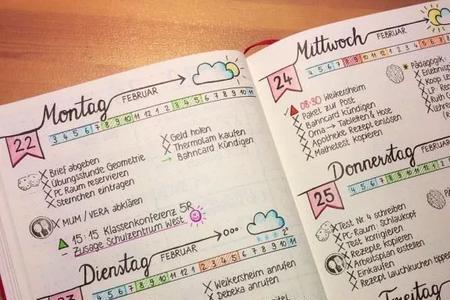 Montag FEBRUAR
3 4 5 6 7 8 9 10 11 12 1 2 3 4 5 6 7 8 9 10 11
22
Brief abgeben
Übungsstunde Geometrie
PC Raum reservieren
Sternchen eintragen
Geld holen
Thermolam kaufen
Bahncard kündigen
MUM / VERA abklären
15:15 Klassenkonferenz 5R
Zusage Schulzentrum West
Dienstag FEBRUAR
Weikersheim anrufen
Debeka anrufen
Mittwoch FEBRUAR
24
08:30 Weikersheim
Paket zur Post
Bahncard kündigen
Oma → Tabletten & Hose
Apotheke Rezept einlösen
Mathetest kopieren
Pädagogik
Erlebnisp
Koop
LP
Ruth
Donnerstag FEBRUAR
25
Test Nr. 4 schreiben
PC-Raum: Schlaukopf
Test korrigieren
Rezepte kopieren
Arbeitsplan erstellen
Einkaufen
Rezept Lauchkuchen
Freitag